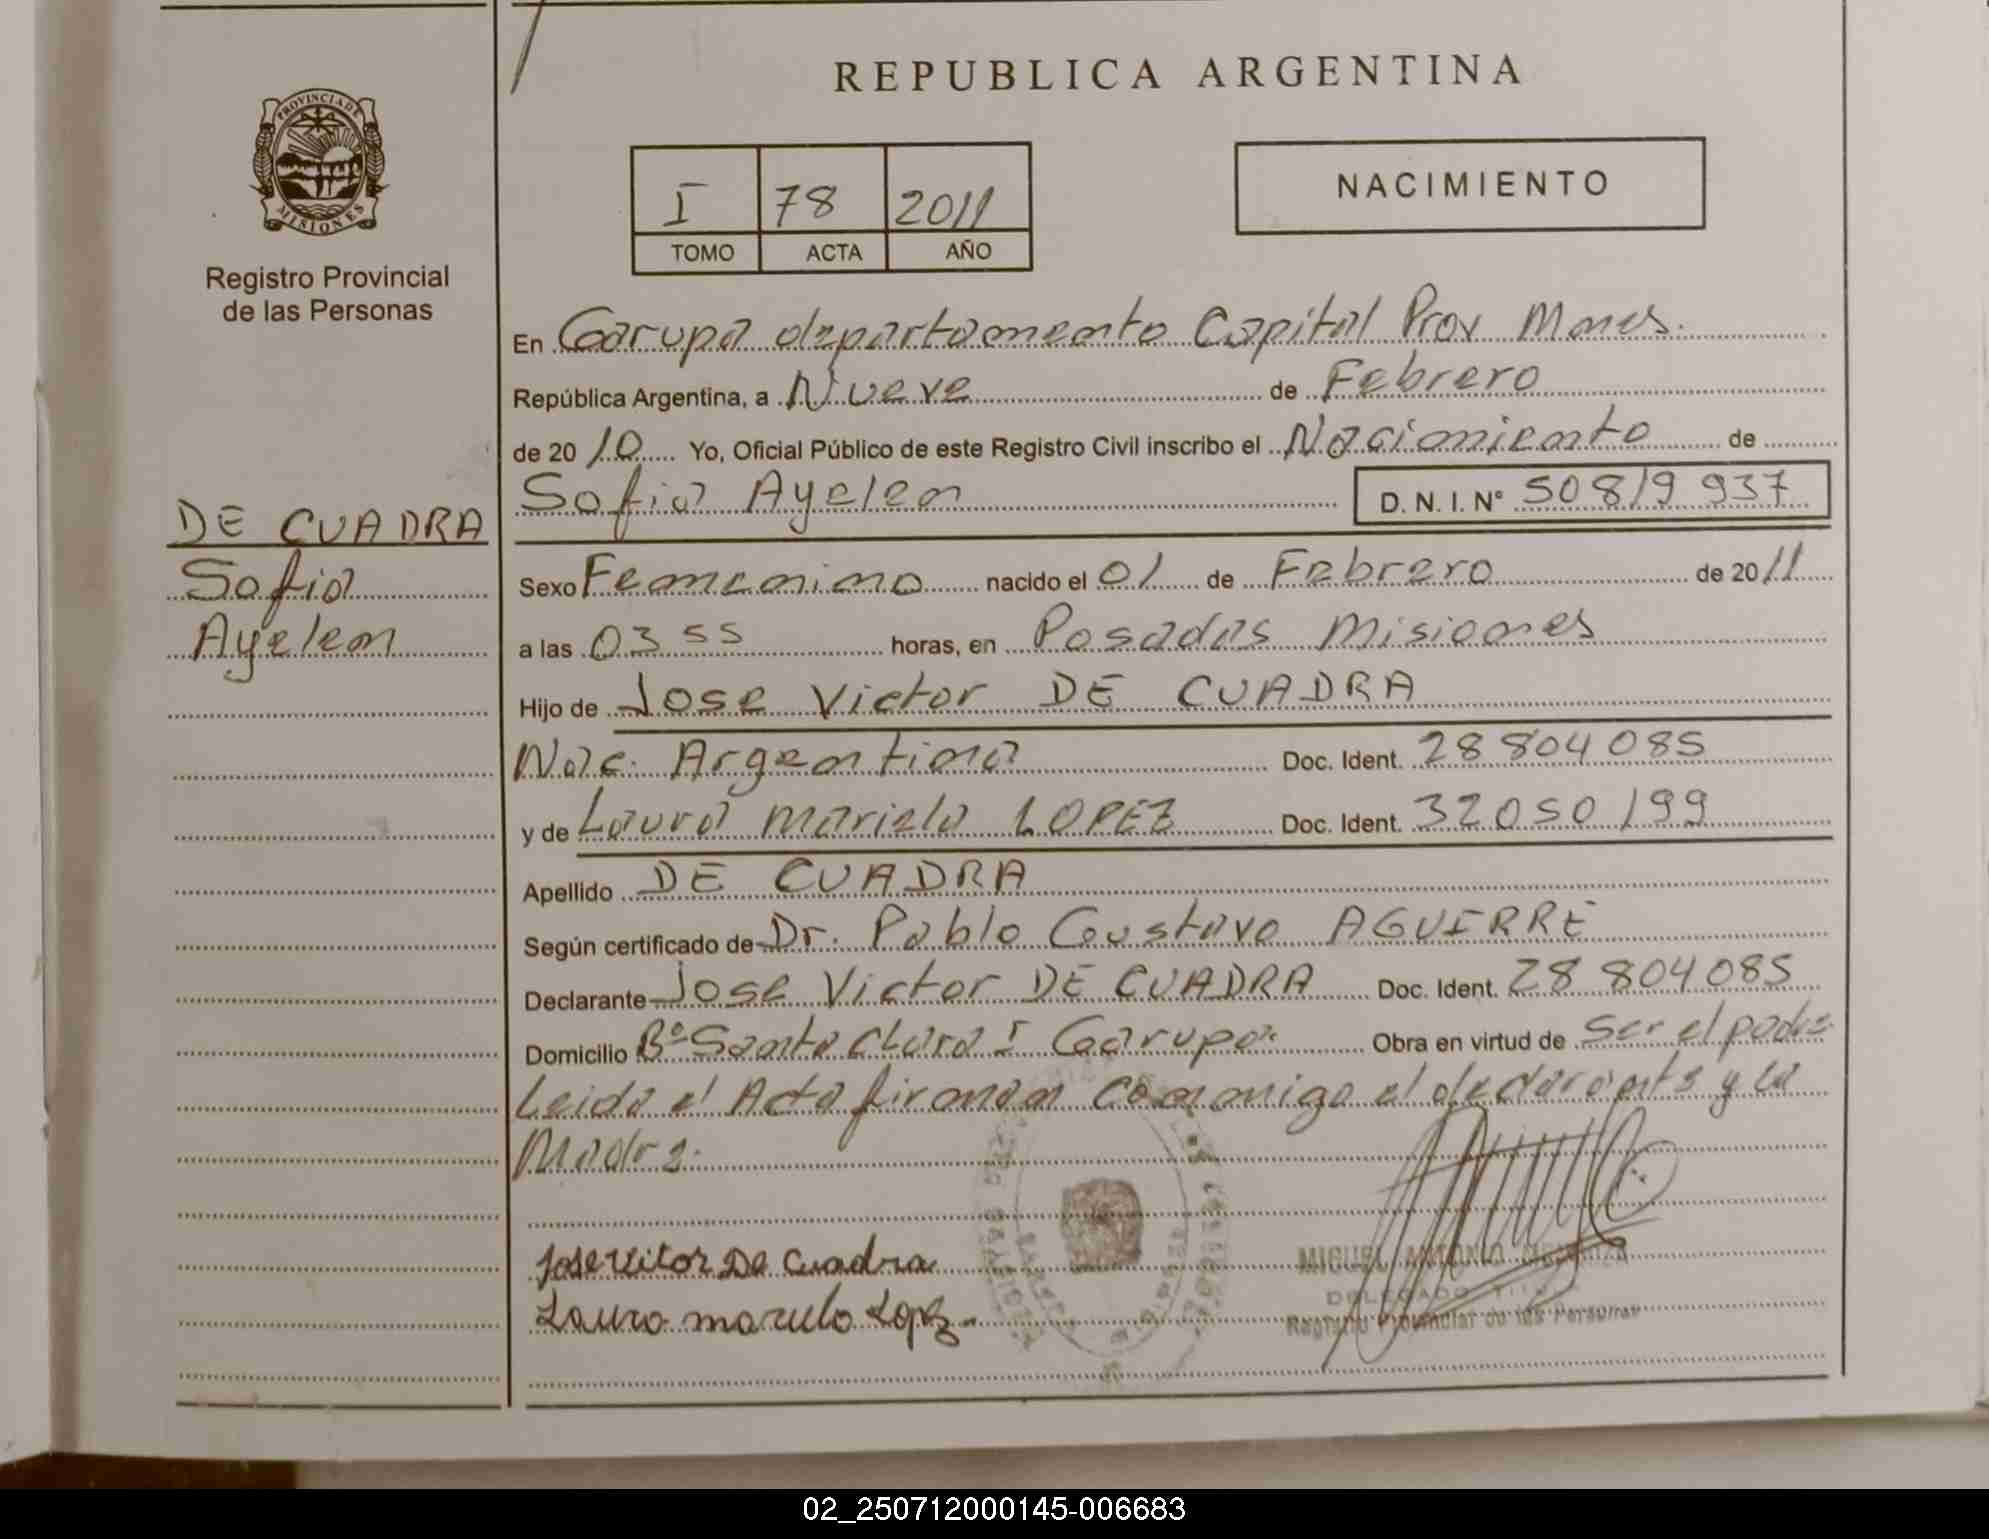 REPUBLICA ARGENTINA
PROVINCIA DE
MISIONES
Registro Provincial
de las Personas
I 78 2011
TOMO ACTA AÑO
NACIMIENTO
En Garupa departamento Capital Prov Mnes.
República Argentina, a Nueve de Febrero
de 2010 Yo, Oficial Público de este Registro Civil inscribo el Nacimiento de
Sofia Ayelen D. N. I. N° 50819937
DE CUADRA
Sofia
Ayelen
Sexo Femenino nacido el 01 de Febrero de 2011
a las 03 55 horas, en Posadas Misiones
Hijo de Jose Victor DE CUADRA
Nac. Argentina Doc. Ident. 28 804 085
y de Laura Mariela LOPEZ Doc. Ident. 32050199
Apellido DE CUADRA
Según certificado de Dr. Pablo Gustavo AGUIRRE
Declarante Jose Victor DE CUADRA Doc. Ident. 28 804 085
Domicilio B° Santa Clara I Garupa Obra en virtud de Ser el padre
Leida el Acta firman conmigo el declarante y la
Madre.
Jose Victor De Cuadra
Laura mariela Lopez.
MIGUEL ANTONIO
DELEGADO
Registro Provincial de las Personas
02_250712000145-006683